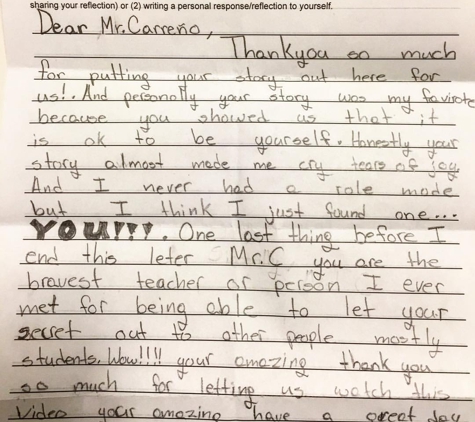 sharing your reflection) or (2) writing a personal response/reflection to yourself.
Dear Mr. Carreño,
Thankyou so much
for putting your story out here for
us!. And personally your story was my favirote
because you showed us that it
is ok to be yourself. Honestly your
story almost made me cry tears of joy
And I never had a role mode
but I think I just found one...
YOU!!!. One last thing before I
end this leter Mr. C you are the
bravest teacher or person I ever
met for being able to let your
secret out to other people mostly
students. Wow!!!! your amazing thank you
so much for letting us watch this
Video your amazing have a great day